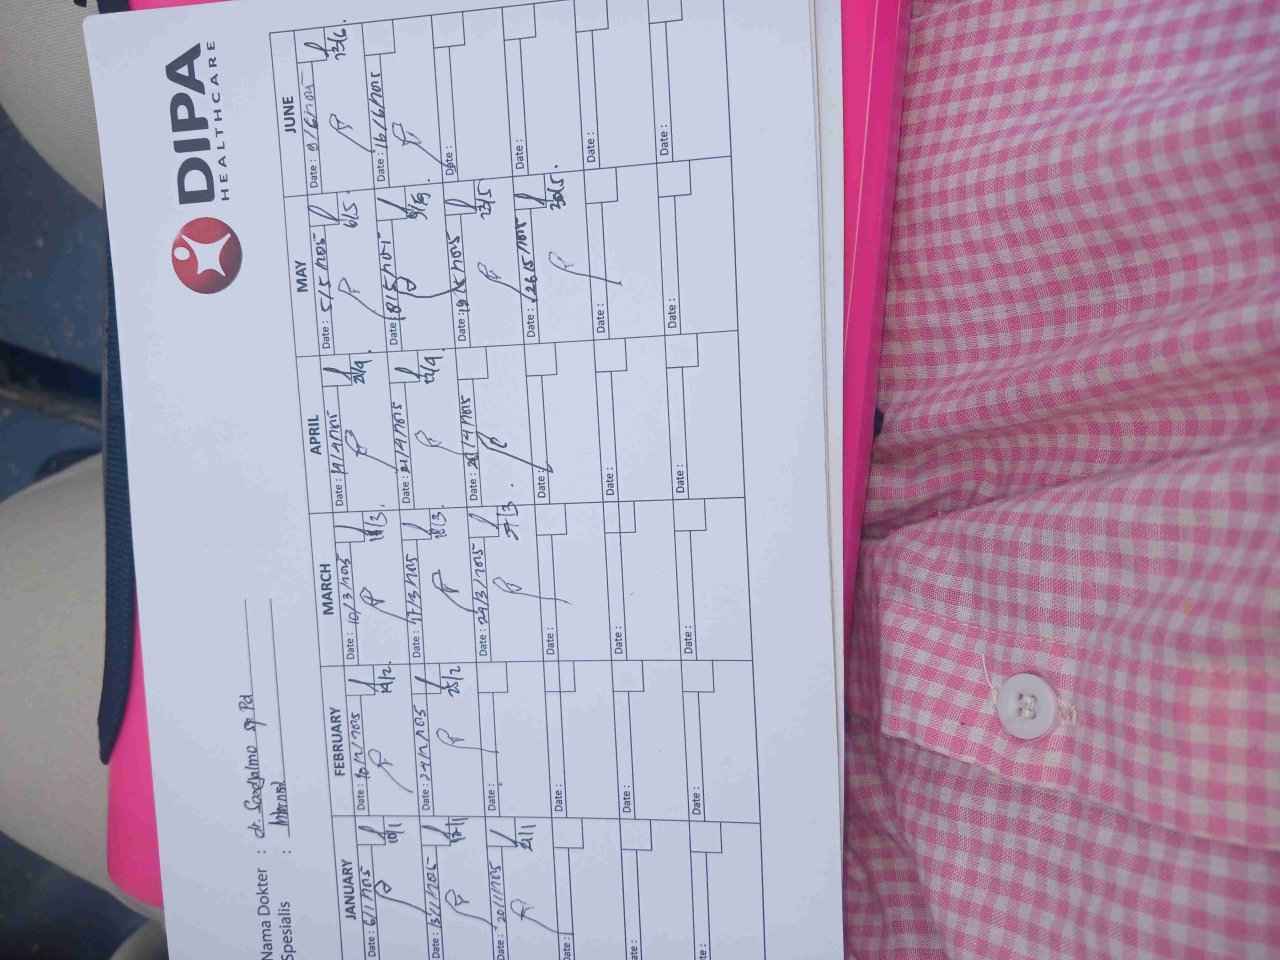 DIPA
HEALTHCARE
Nama Dokter : dr. Sp Pd
Spesialis :
JANUARY FEBRUARY MARCH APRIL MAY JUNE
Date : 6/1/2025 10/1 Date : 10/2/2025 19/2 Date : 10/3/2025 Date : 14/4/2025 21/4 Date : 5/5/2025 6/5 Date : 9/6/2025 13/6
Date : 13/1/2025 17/1 Date : 24/2/2025 25/2 Date : 17/3/2025 18/3 Date : 21/4/2025 Date : Date : 16/6/2025
Date : 20/1/2025 21/1 Date : Date : 24/3/2025 Date : Date : 19/5/2025 23/5 Date :
Date : Date : Date : Date : Date : 26/5/2025 30/5 Date :
Date : Date : Date : Date : Date : Date :
Date : Date : Date : Date : Date : Date :